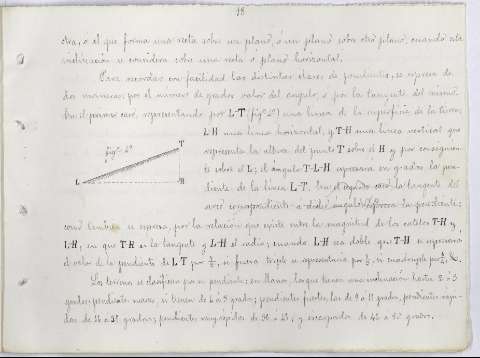 18
otra, ó el que forma una recta sobre un plano, ó un plano sobre otro plano, cuando esta
inclinación se considera sobre una recta ó plano horizontal.
Para recordar con facilidad las distintas clases de pendientes, se expresa de
dos maneras; por el número de grados valor del ángulo, ó por la tangente del mismo.
En el primer caso, representando por L-T (figª 2ª) una línea de la superficie de la tierra,
L-H una línea horizontal, y T-H una línea vertical que
representa la altura del punto T sobre el H y por consiguien-
te sobre el L; el ángulo T-L-H expresará en grados la pen-
diente de la línea L-T. En el segundo caso la tangente del
arco correspondiente á dicho ángulo, expresa la pendiente;
figª 2ª
T
L
H
como también se expresa, por la relación que existe entre la magnitud de los catetos T-H y
L-H, en que T-H es la tangente y L-H el radio; cuando L-H sea doble que T-H se expresará
el valor de la pendiente de L T por ½, si fuera triple se representaría por ⅓, si cuadruple por ¼, &.
Los terrenos se clasifican por su pendiente: en llanos, los que tienen una inclinación hasta 2 ó 3
grados; pendientes suaves, si tienen de 4 á 8 grados; pendientes fuertes, las de 9 á 11 grados, pendientes
grados; pendientes muy rápidas de y escarpados de grados.